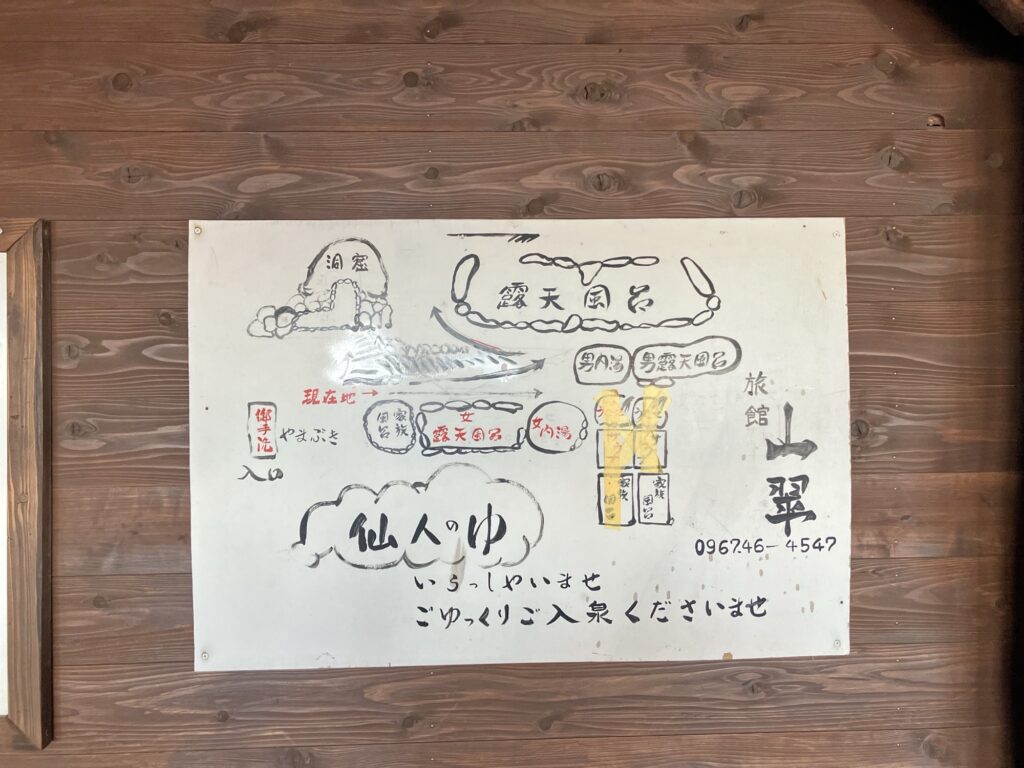 洞窟
露天風呂
男内湯
男露天風呂
現在地→
御手洗
やまぶき
入口
家族風呂
女
露天風呂
女内湯
家族風呂
家族風呂
旅館
山翠
096746-4547
仙人のゆ
いらっしゃいませ
ごゆっくりご入泉くださいませ